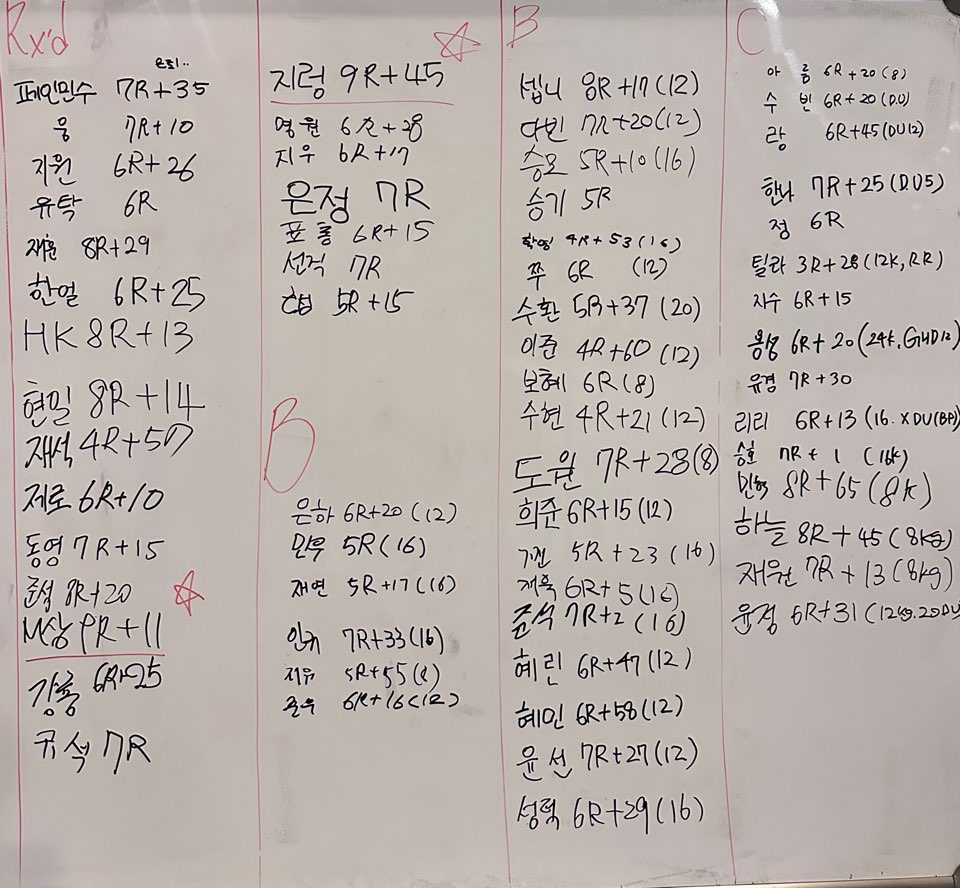 Rx'd
페인민수 7R+35
웅 7R+10
지원 6R+26
유탁 6R
재훈 8R+29
한얼 6R+25
HK 8R+13
현일 8R+14
재석 4R+57
제로 6R+10
동영 7R+15
준석 8R+20
M상 9R+11
강룡 6R+25
귀석 7R
지렁 9R+45
영원 6R+28
지우 6R+17
은정 7R
표롱 6R+15
선격 7R
5R+15
B
은하 6R+20 (12)
민우 5R (16)
재연 5R+17 (16)
인규 7R+33 (16)
지유 5R+55 (8)
6R+16 (12)
B
셉니 8R+17 (12)
다빈 7R+20 (12)
승모 5R+10 (16)
승기 5R
학영 4R+53 (16)
쭈 6R (12)
수환 5R+37 (20)
이준 4R+60 (12)
보혜 6R (8)
수현 4R+21 (12)
도원 7R+28 (8)
희준 6R+15 (12)
5R+23 (16)
재욱 6R+5 (16)
준석 7R+2 (16)
혜린 6R+47 (12)
혜민 6R+58 (12)
윤선 7R+27 (12)
성혁 6R+29 (16)
C
아름 6R+20 (8)
수빈 6R+20 (DU)
랑 6R+45 (DU12)
한나 7R+25 (DU5)
정 6R
틸라 3R+28 (12K, RR)
지수 6R+15
용성 6R+20 (24k, GHD12)
유경 7R+30
리리 6R+13 (16. XDU(BP)
승호 7R+1 (16k)
민혁 8R+65 (8K)
하늘 8R+45 (8kg)
재원 7R+13 (8kg)
윤정 6R+31 (12kg. 20DU)